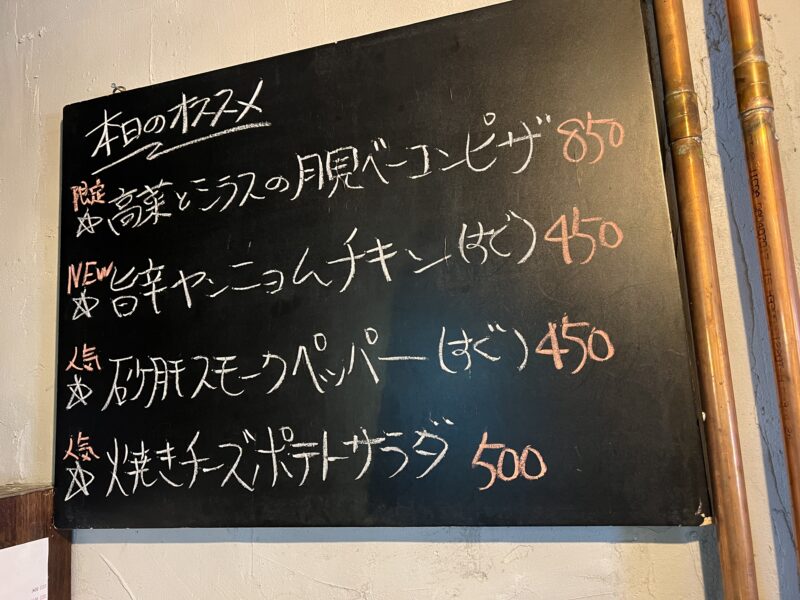 本日のオススメ
限定
☆高菜とシラスの月見ベーコンピザ 850
NEW
☆旨辛ヤンニョムチキン(すぐ) 450
人気
☆砂肝スモークペッパー(すぐ) 450
人気
☆焼きチーズポテトサラダ 500